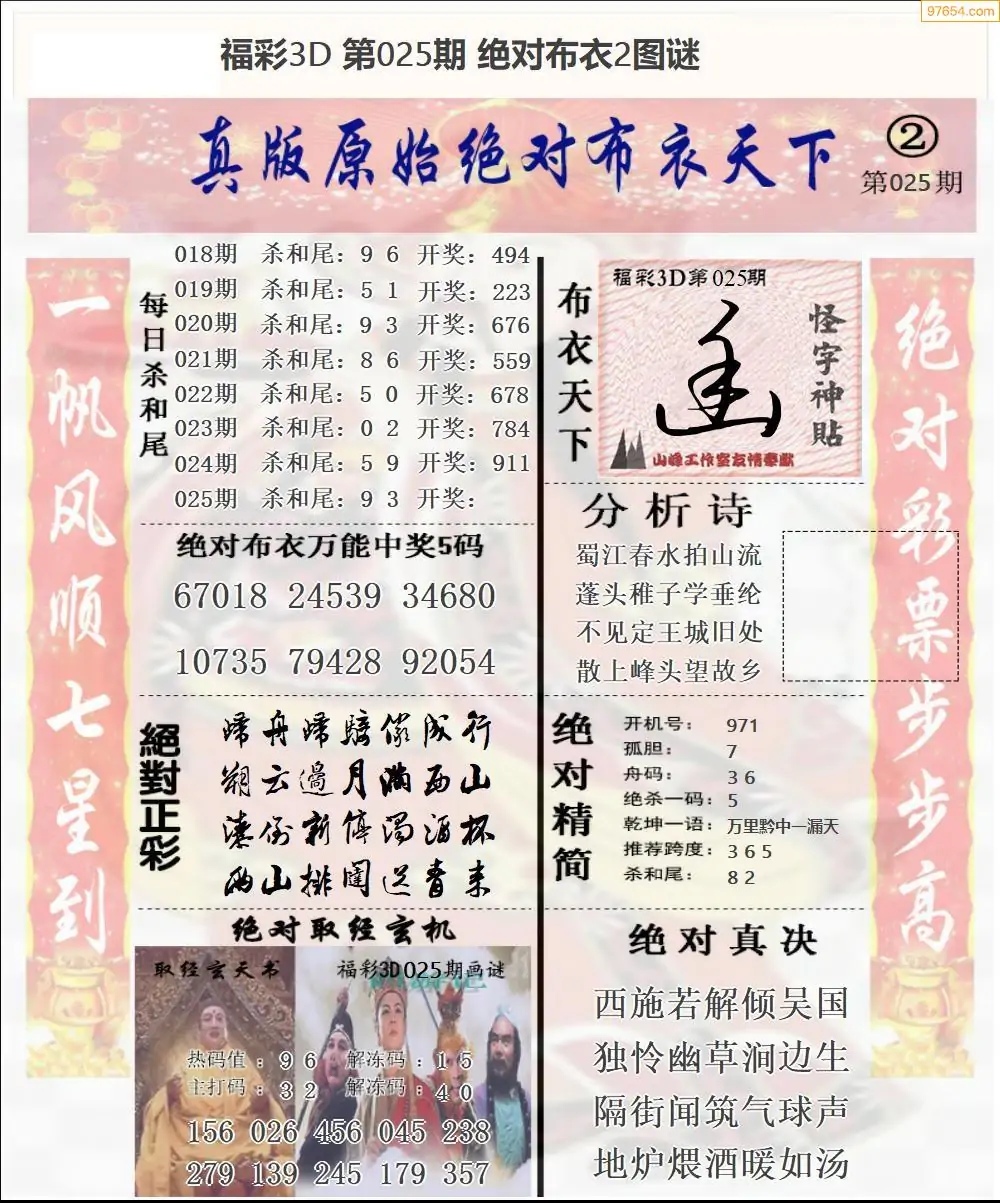 97654.com
福彩3D 第025期 绝对布衣2图谜
真版原始绝对布衣天下
②
第025期
一帆风顺七星到
每日杀和尾
018期 杀和尾：9 6 开奖：494
019期 杀和尾：5 1 开奖：223
020期 杀和尾：9 3 开奖：676
021期 杀和尾：8 6 开奖：559
022期 杀和尾：5 0 开奖：678
023期 杀和尾：0 2 开奖：784
024期 杀和尾：5 9 开奖：911
025期 杀和尾：9 3 开奖：
绝对布衣万能中奖5码
67018 24539 34680
10735 79428 92054
絕對正彩
归舟归骑俨成行
朔云边月满西山
潦倒新停浊酒杯
两山排闼送青来
绝对取经玄机
取经玄天书
福彩3D025期画谜
热码值：9 6 解冻码：1 5
主打码：3 2 解冻码：4 0
156 026 456 045 238
279 139 245 179 357
布衣天下
福彩3D第025期
怪字神貼
山峰工作室友情奉献
分析诗
蜀江春水拍山流
蓬头稚子学垂纶
不见定王城旧处
散上峰头望故乡
绝对精简
开机号： 971
孤胆： 7
舟码： 3 6
绝杀一码： 5
乾坤一语： 万里黔中一漏天
推荐跨度： 3 6 5
杀和尾： 8 2
绝对真决
西施若解倾吴国
独怜幽草涧边生
隔街闻筑气球声
地炉煨酒暖如汤
绝对彩票步步高